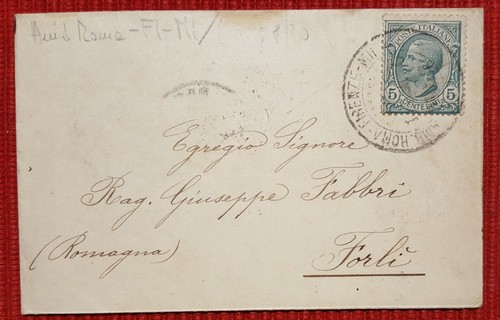 Amb Roma-FI-MI/
POSTE ITALIANE
5 CENTESIMI 5
AMB. ROMA-FIRENZE-MIL
Egregio Signore
Rag. Giuseppe Fabbri
(Romagna)
Forlì